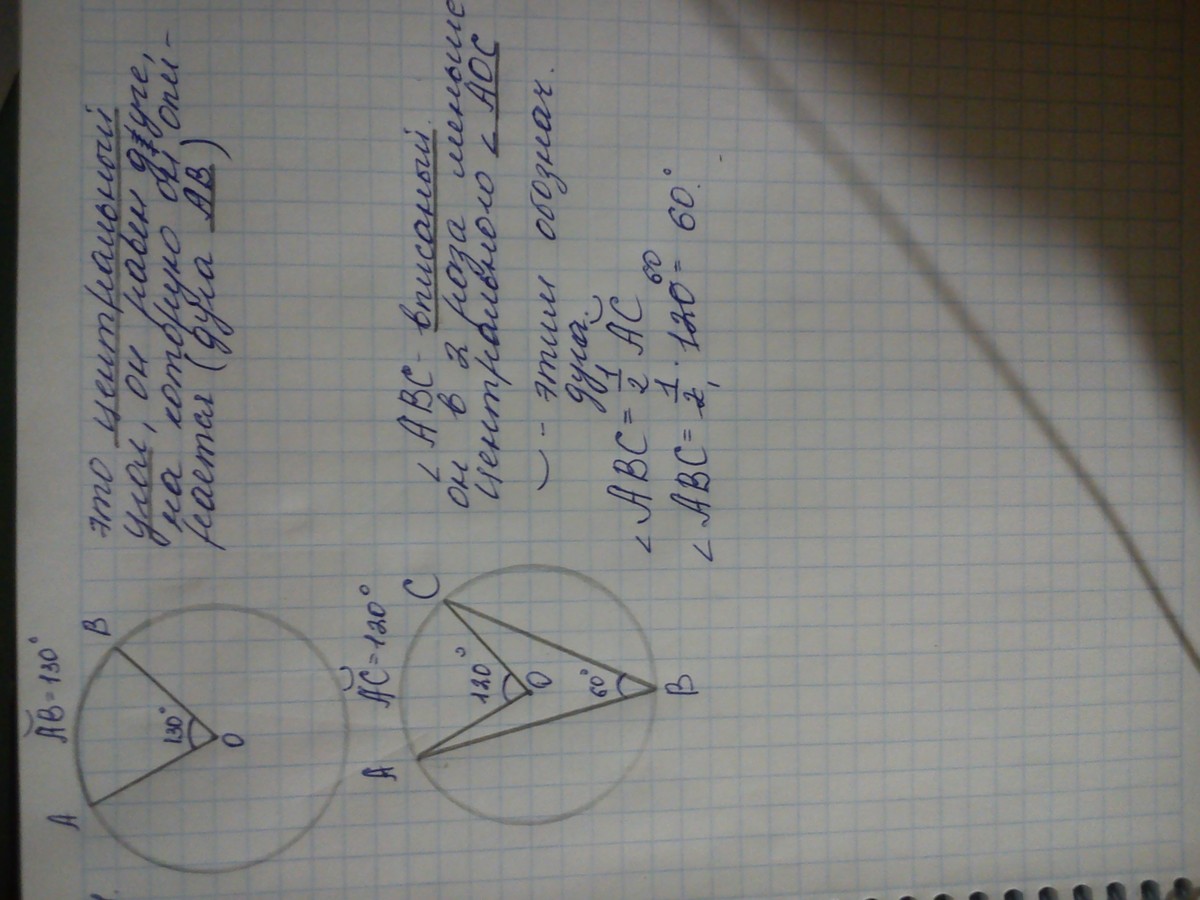 A
B
ᴗAB = 130°
130°
O
это центральный
угол, он равен дуге,
на которую он опи-
рается (дуга AB)
ᴗAC = 120°
A
C
120°
O
60°
B
< ABC - вписаный.
он в 2 раза меньше
центрального < AOC
◡ - этим обознач.
дуга.
< ABC = 1/2 ᴗAC
< ABC = 1/2 · 120 60 = 60°.